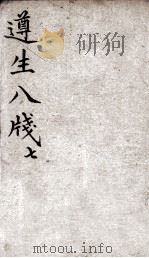 遵生八牋
七
mtoou.info